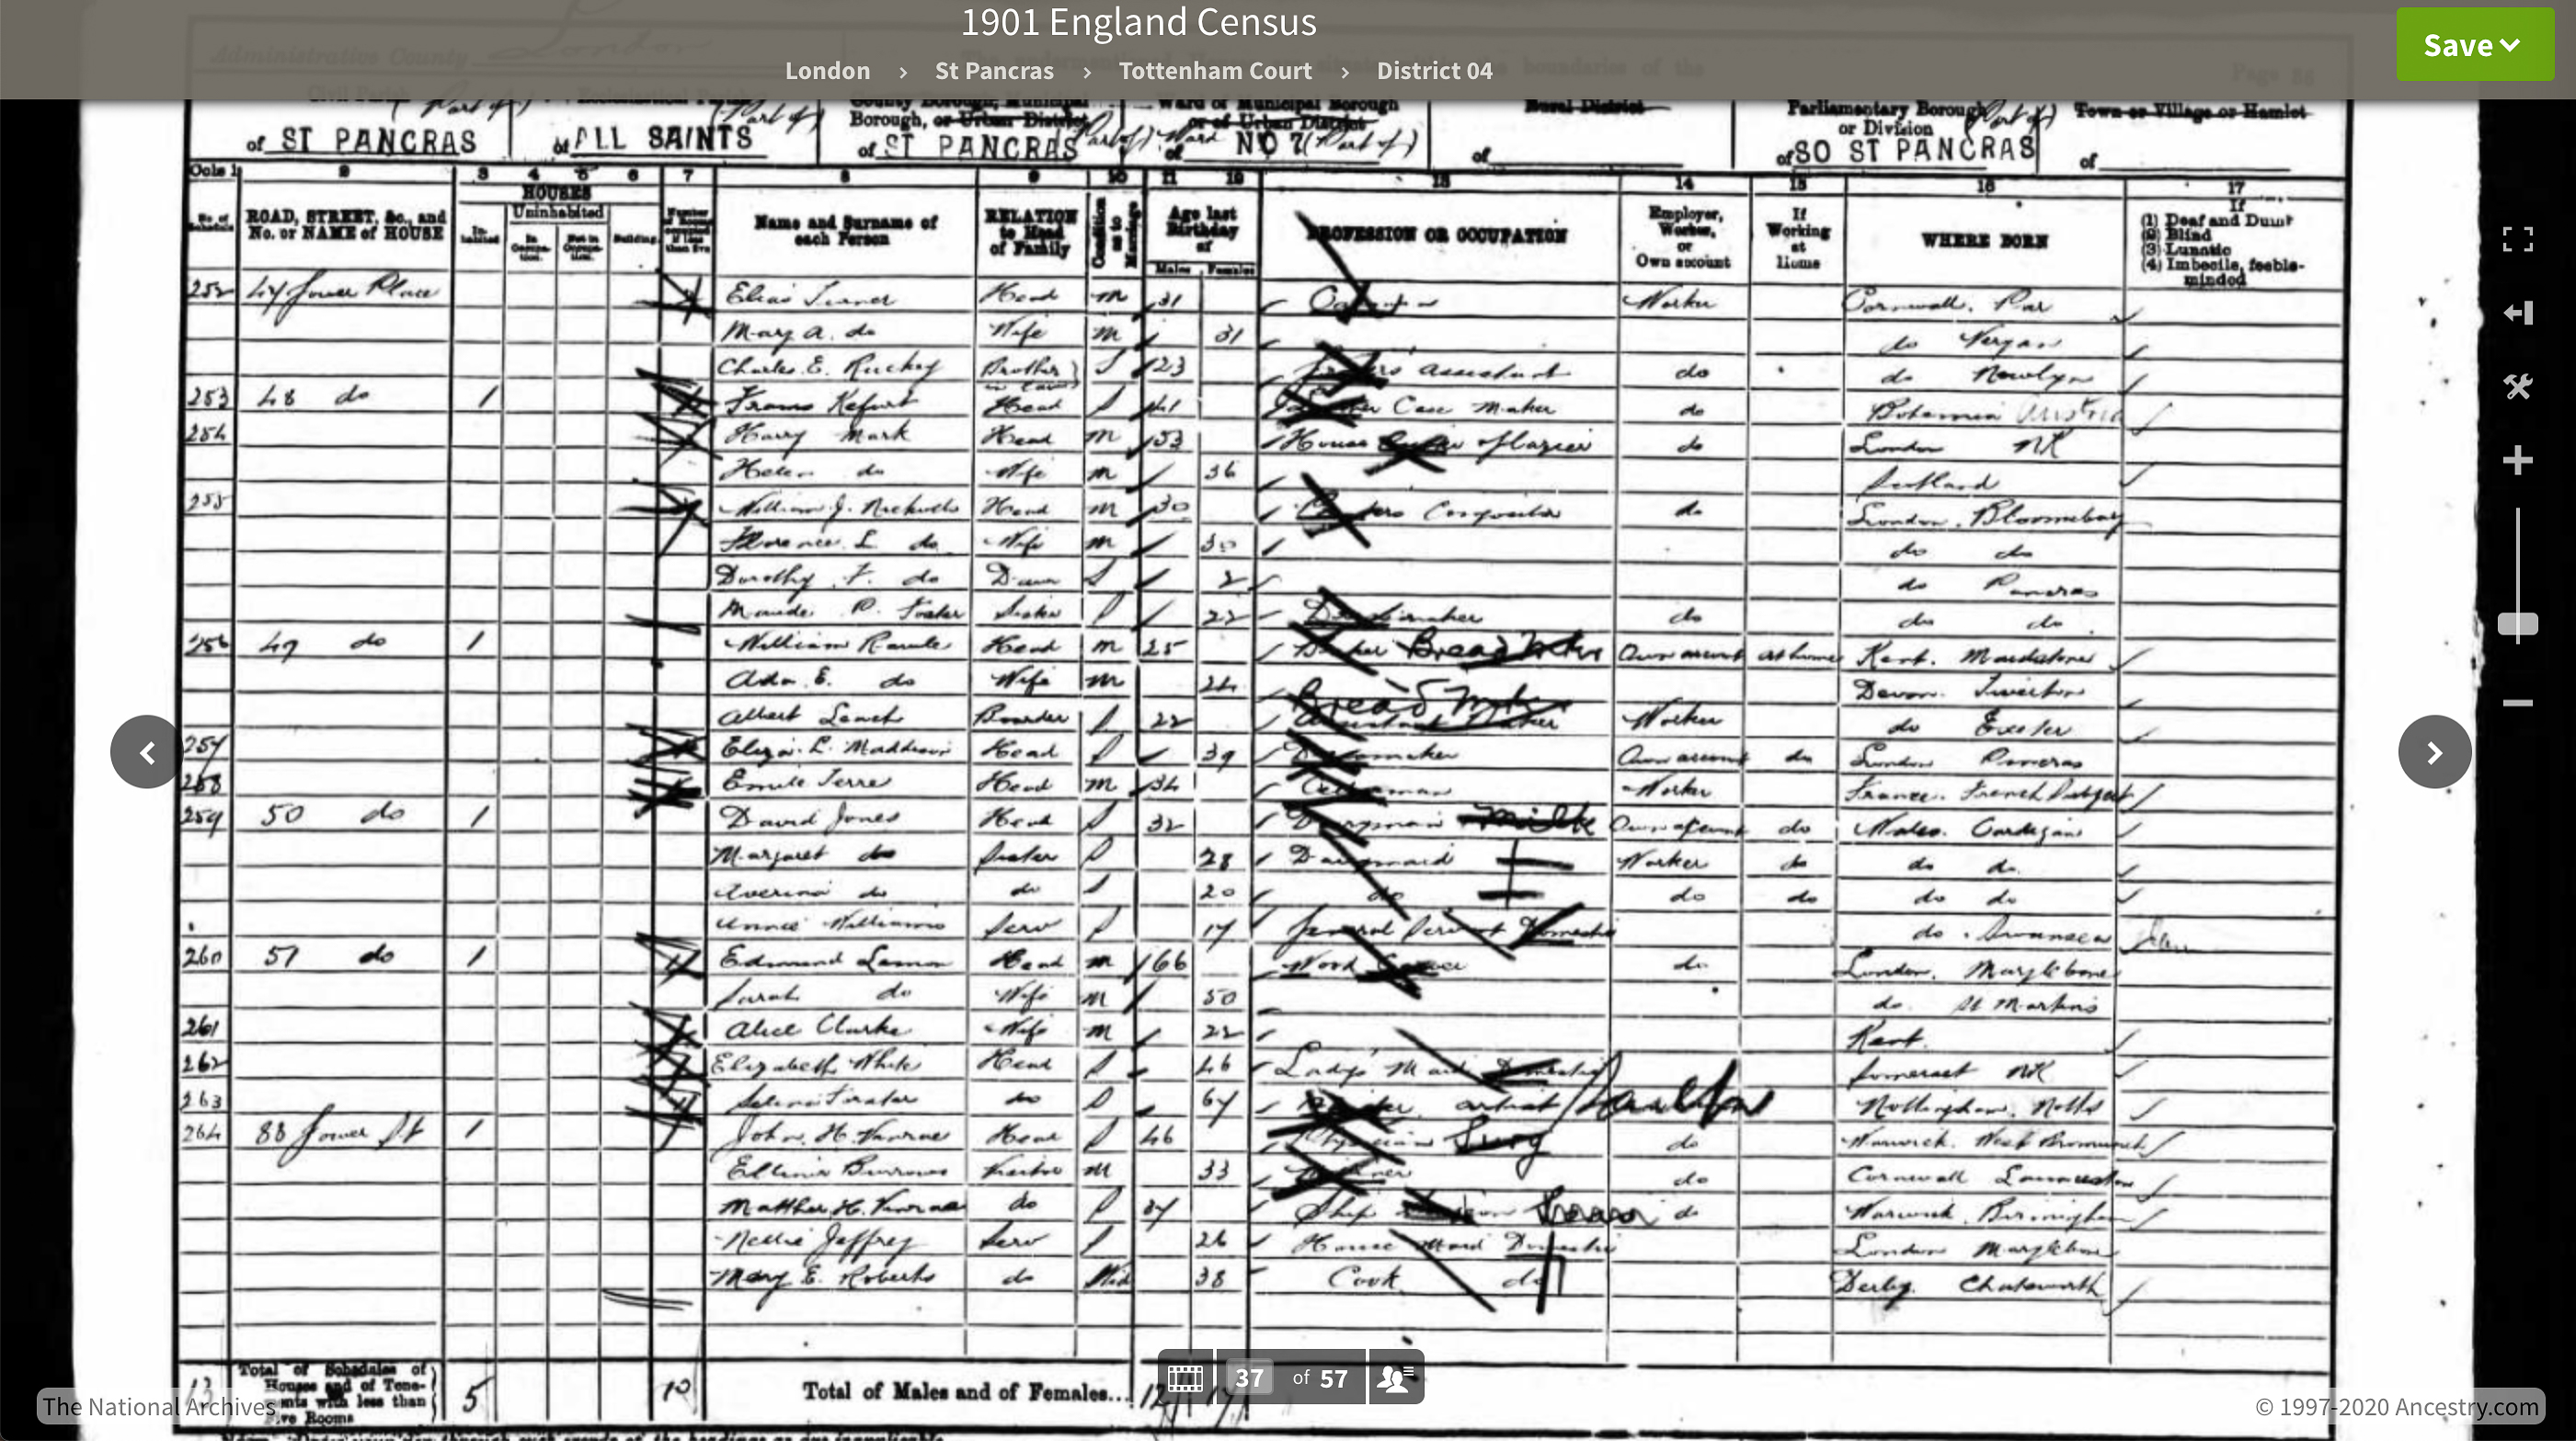 1901 England Census
Save
London › St Pancras › Tottenham Court › District 04
Administrative County London boundaries of the
Civil Parish (Part of) Ecclesiastical Parish (Part of) County Borough, Municipal Borough, or Urban District (Part of) Ward of Municipal Borough or of Urban District Rural District Parliamentary Borough or Division (Part of) Town or Village or Hamlet
of ST PANCRAS of ALL SAINTS of ST PANCRAS of NO 7 (Part of) of of SO ST PANCRAS of
Cols 1 2 3 4 5 6 7 8 9 10 11 12 13 14 15 16 17
No. of Schedule ROAD, STREET, &c., and No. or NAME of HOUSE HOUSES Inhabited Uninhabited In Occupation. Not in Occupation. Building. Name and Surname of each Person RELATION to Head of Family Condition as to Marriage Age last Birthday of Males Females PROFESSION OR OCCUPATION Employer, Worker, or Own account If Working at Home WHERE BORN If (1) Deaf and Dumb (2) Blind (3) Lunatic (4) Imbecile, feeble-minded
252 47 Gower Place Elias Turner Head M 31 Worker Cornwall. Par
Mary A. do Wife M 31 do
Charles E. Brother in law S 23 assistant do do Newlyn
253 48 do 1 Head S 41 Case Maker do Bohemia Austria
254 Harry Mark Head M 53 House do London NK
Helen do Wife M 36 Scotland
255 William J. Head M 30 Compositor do London. Bloomsbury
Florence L. do Wife M 30 do do
Dorothy F. do Daur S 2 do Pancras
Maude P. Foster Sister S 22 Dressmaker do do do
256 49 do 1 William Head M 25 Baker Bread Own account at home Kent. Maidstone
Ada E. do Wife M 24 Devon. Tiverton
Albert Leach Boarder S 22 Bread Assistant Baker Worker do Exeter
257 Eliza L. Maddison Head S 39 Dressmaker Own account do London Pancras
258 Emile Terre Head M 34 Worker France. French Subject
259 50 do 1 David Jones Head S 32 Dairyman Milk Own account do Wales. Cardigan
Margaret do Sister S 28 Dairymaid Worker do do do
do do S 20 do do do do do
Annie Williams Serv S 17 General Servant Domestic do Swansea
260 51 do 1 Edmund Head M 66 Wood Carver do London. Marylebone
Sarah do Wife M 50 do St Martins
261 Alice Clarke Wife M 22 Kent.
262 Elizabeth White Head S 46 Lady's Maid Domestic Somerset NK
263 Selina do S 67 artist Nottingham. Notts
264 88 Gower St 1 John H. Head S 46 Physician Surg do Warwick. West Bromwich
Burrows Visitor M 33 do Cornwall Launceston
Matthew H. do S 37 Ship do Warwick. Birmingham
Nellie Jeffrey Serv S 26 House Maid Domestic London Marylebone
Mary E. Roberts do Wid 38 Cook do Derby. Chatsworth
13 Total of Schedules of Houses and of Tenements with less than Five Rooms 5 10 Total of Males and of Females... 12 17
37 of 57
The National Archives
© 1997-2020 Ancestry.com